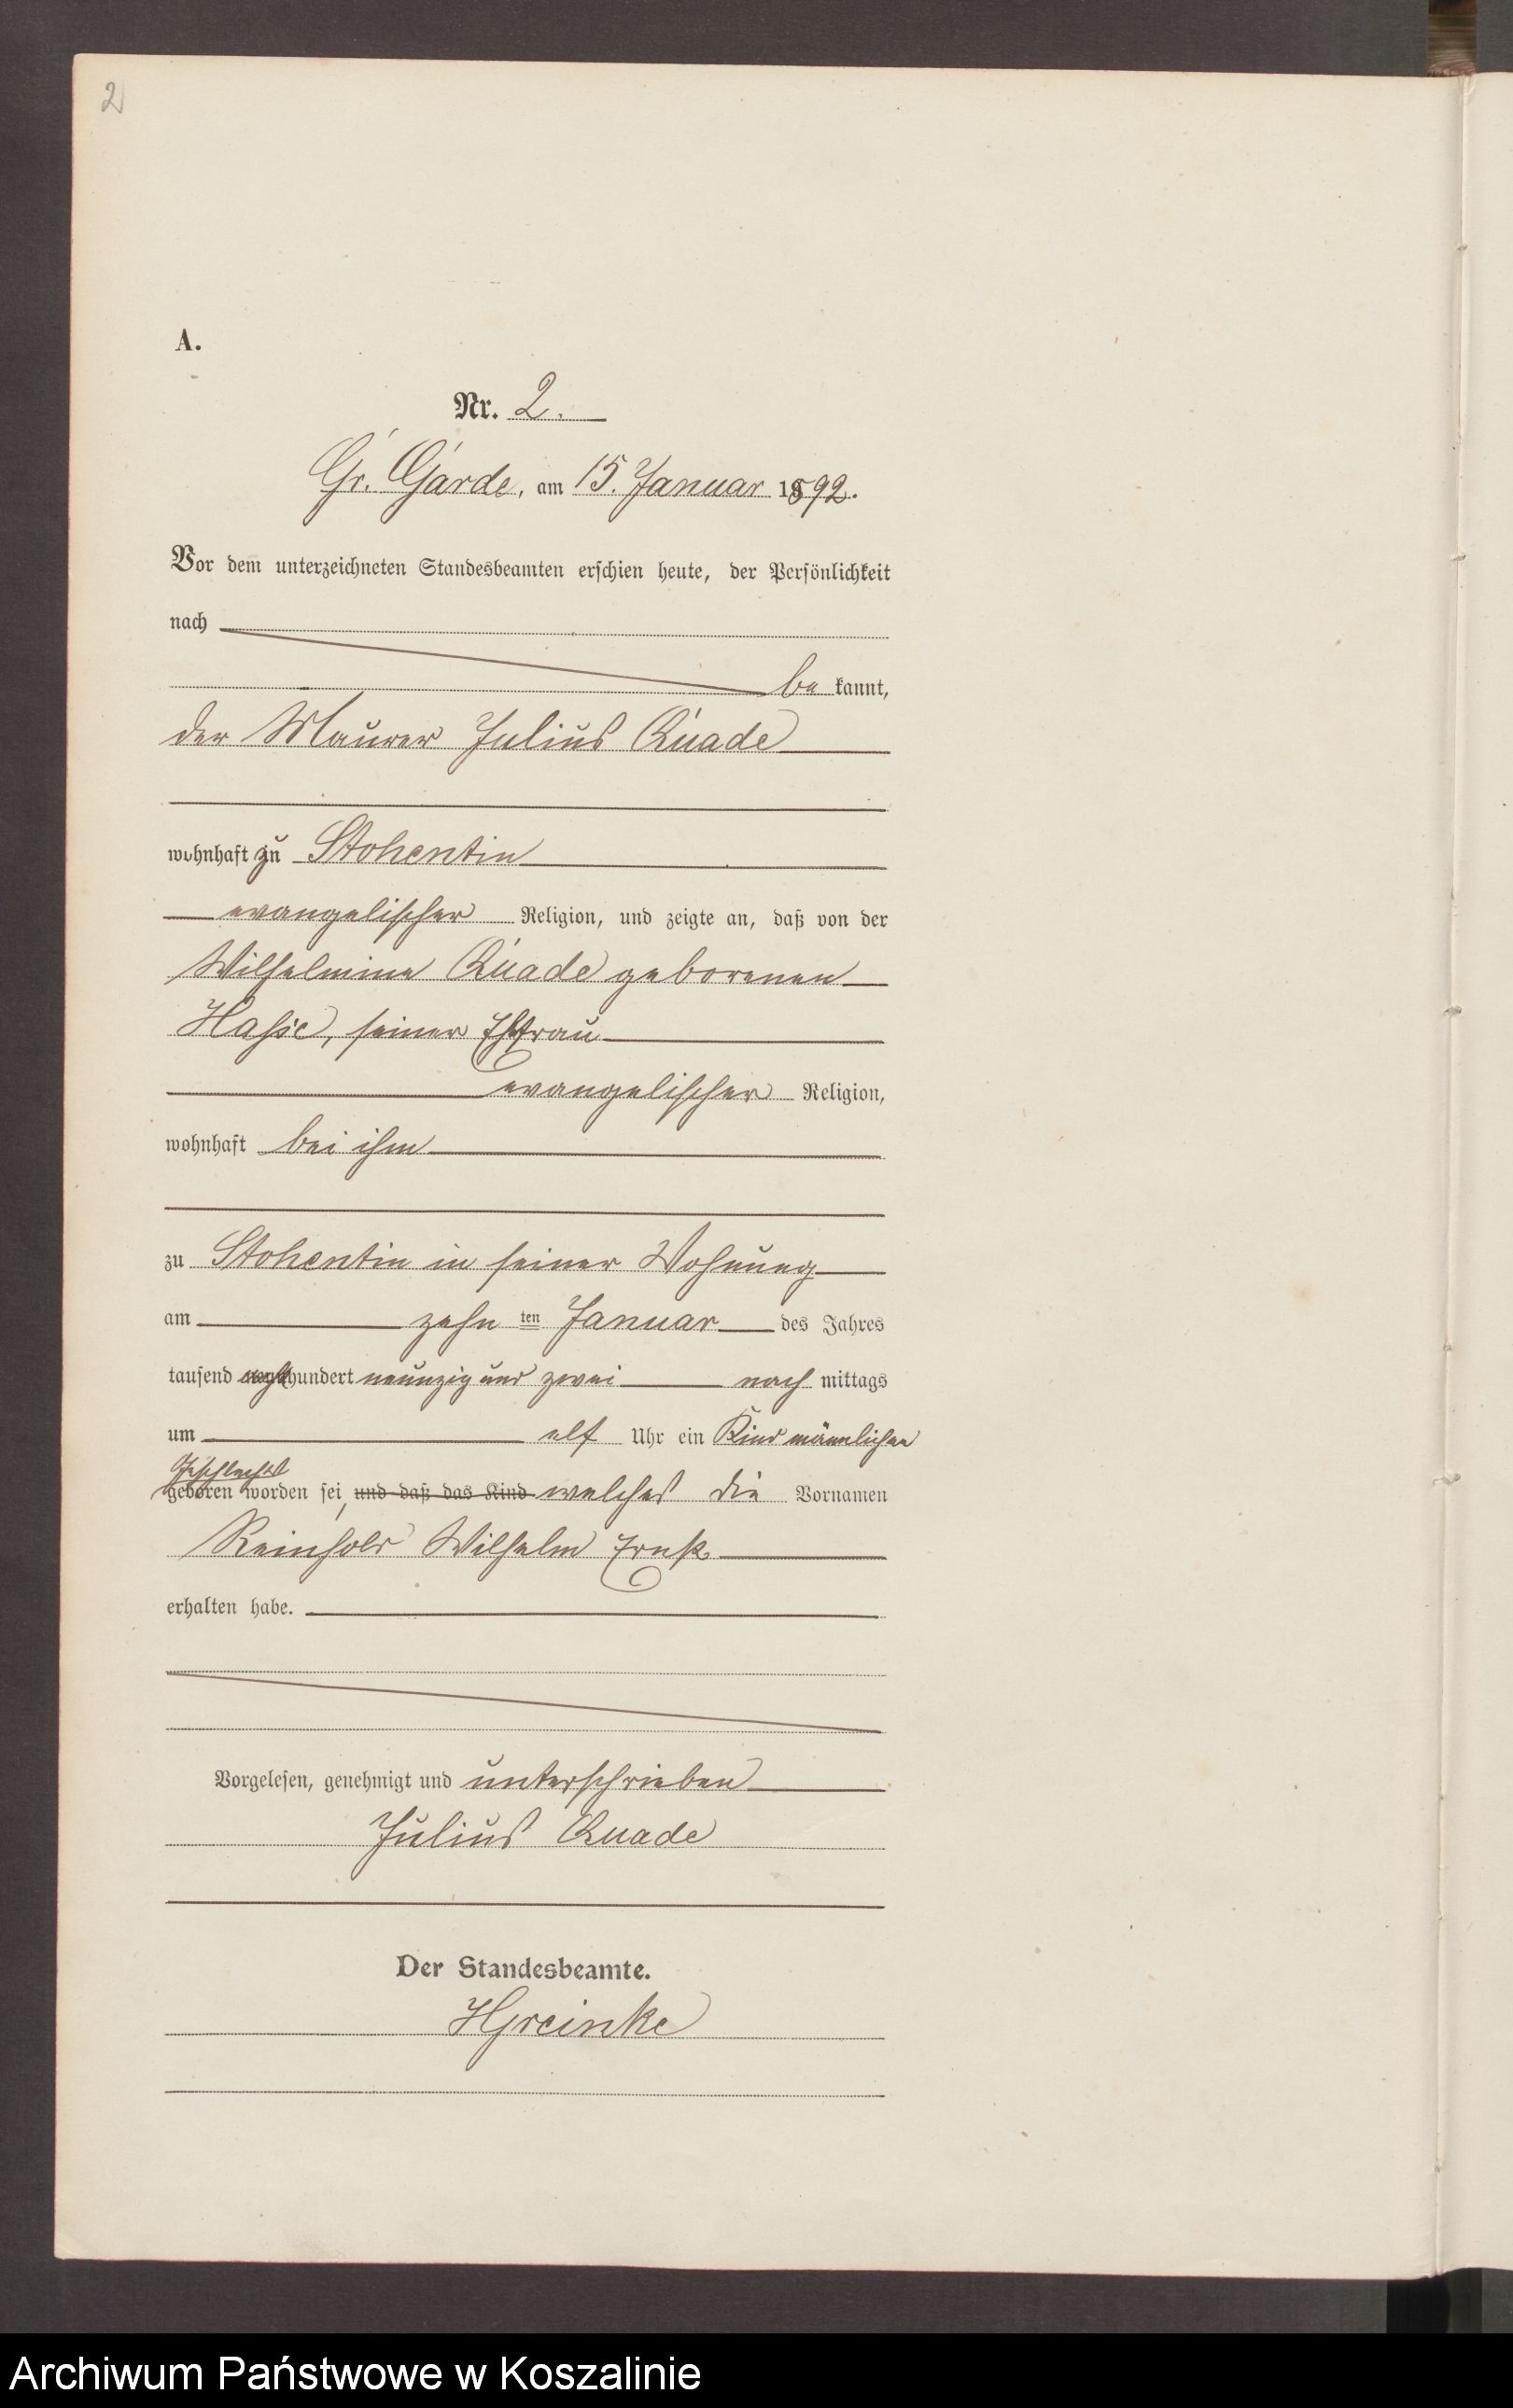 2
A.
Nr. 2.
Gr. Garde, am 15. Januar 1892.
Vor dem unterzeichneten Standesbeamten erschien heute, der Persönlichkeit
nach
be kannt,
der Maurer Julius Quade
wohnhaft zu Stohentin
evangelischer Religion, und zeigte an, daß von der
Wilhelmine Quade geborenen
Hasse, seiner Ehefrau
evangelischer Religion,
wohnhaft bei ihm
zu Stohentin in seiner Wohnung
am zehn ten Januar des Jahres
tausend acht hundert neunzig und zwei nach mittags
um elf Uhr ein Kind männlichen
Geschlechts
geboren worden sei, und daß das Kind welches die Vornamen
Reinhold Wilhelm Ernst
erhalten habe.
Vorgelesen, genehmigt und unterschrieben
Julius Quade
Der Standesbeamte.
HGreinke
Archiwum Państwowe w Koszalinie